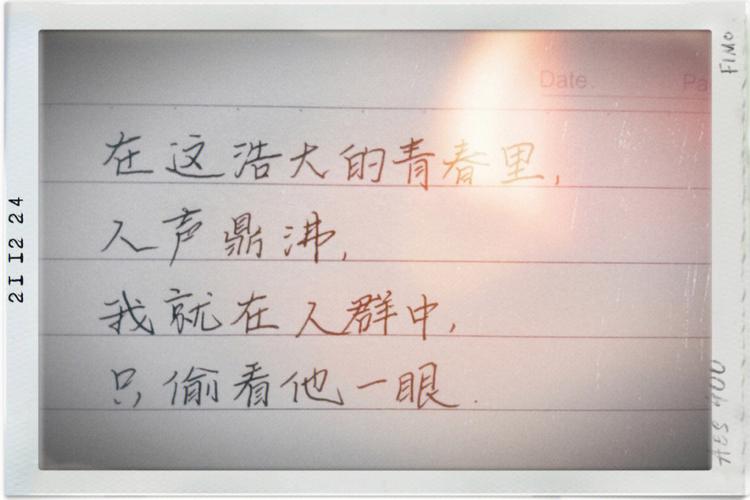 Date.
Pa
在这浩大的青春里,
人声鼎沸,
我就在人群中,
只偷看他一眼.
21 12 24
FIMO
AES 400